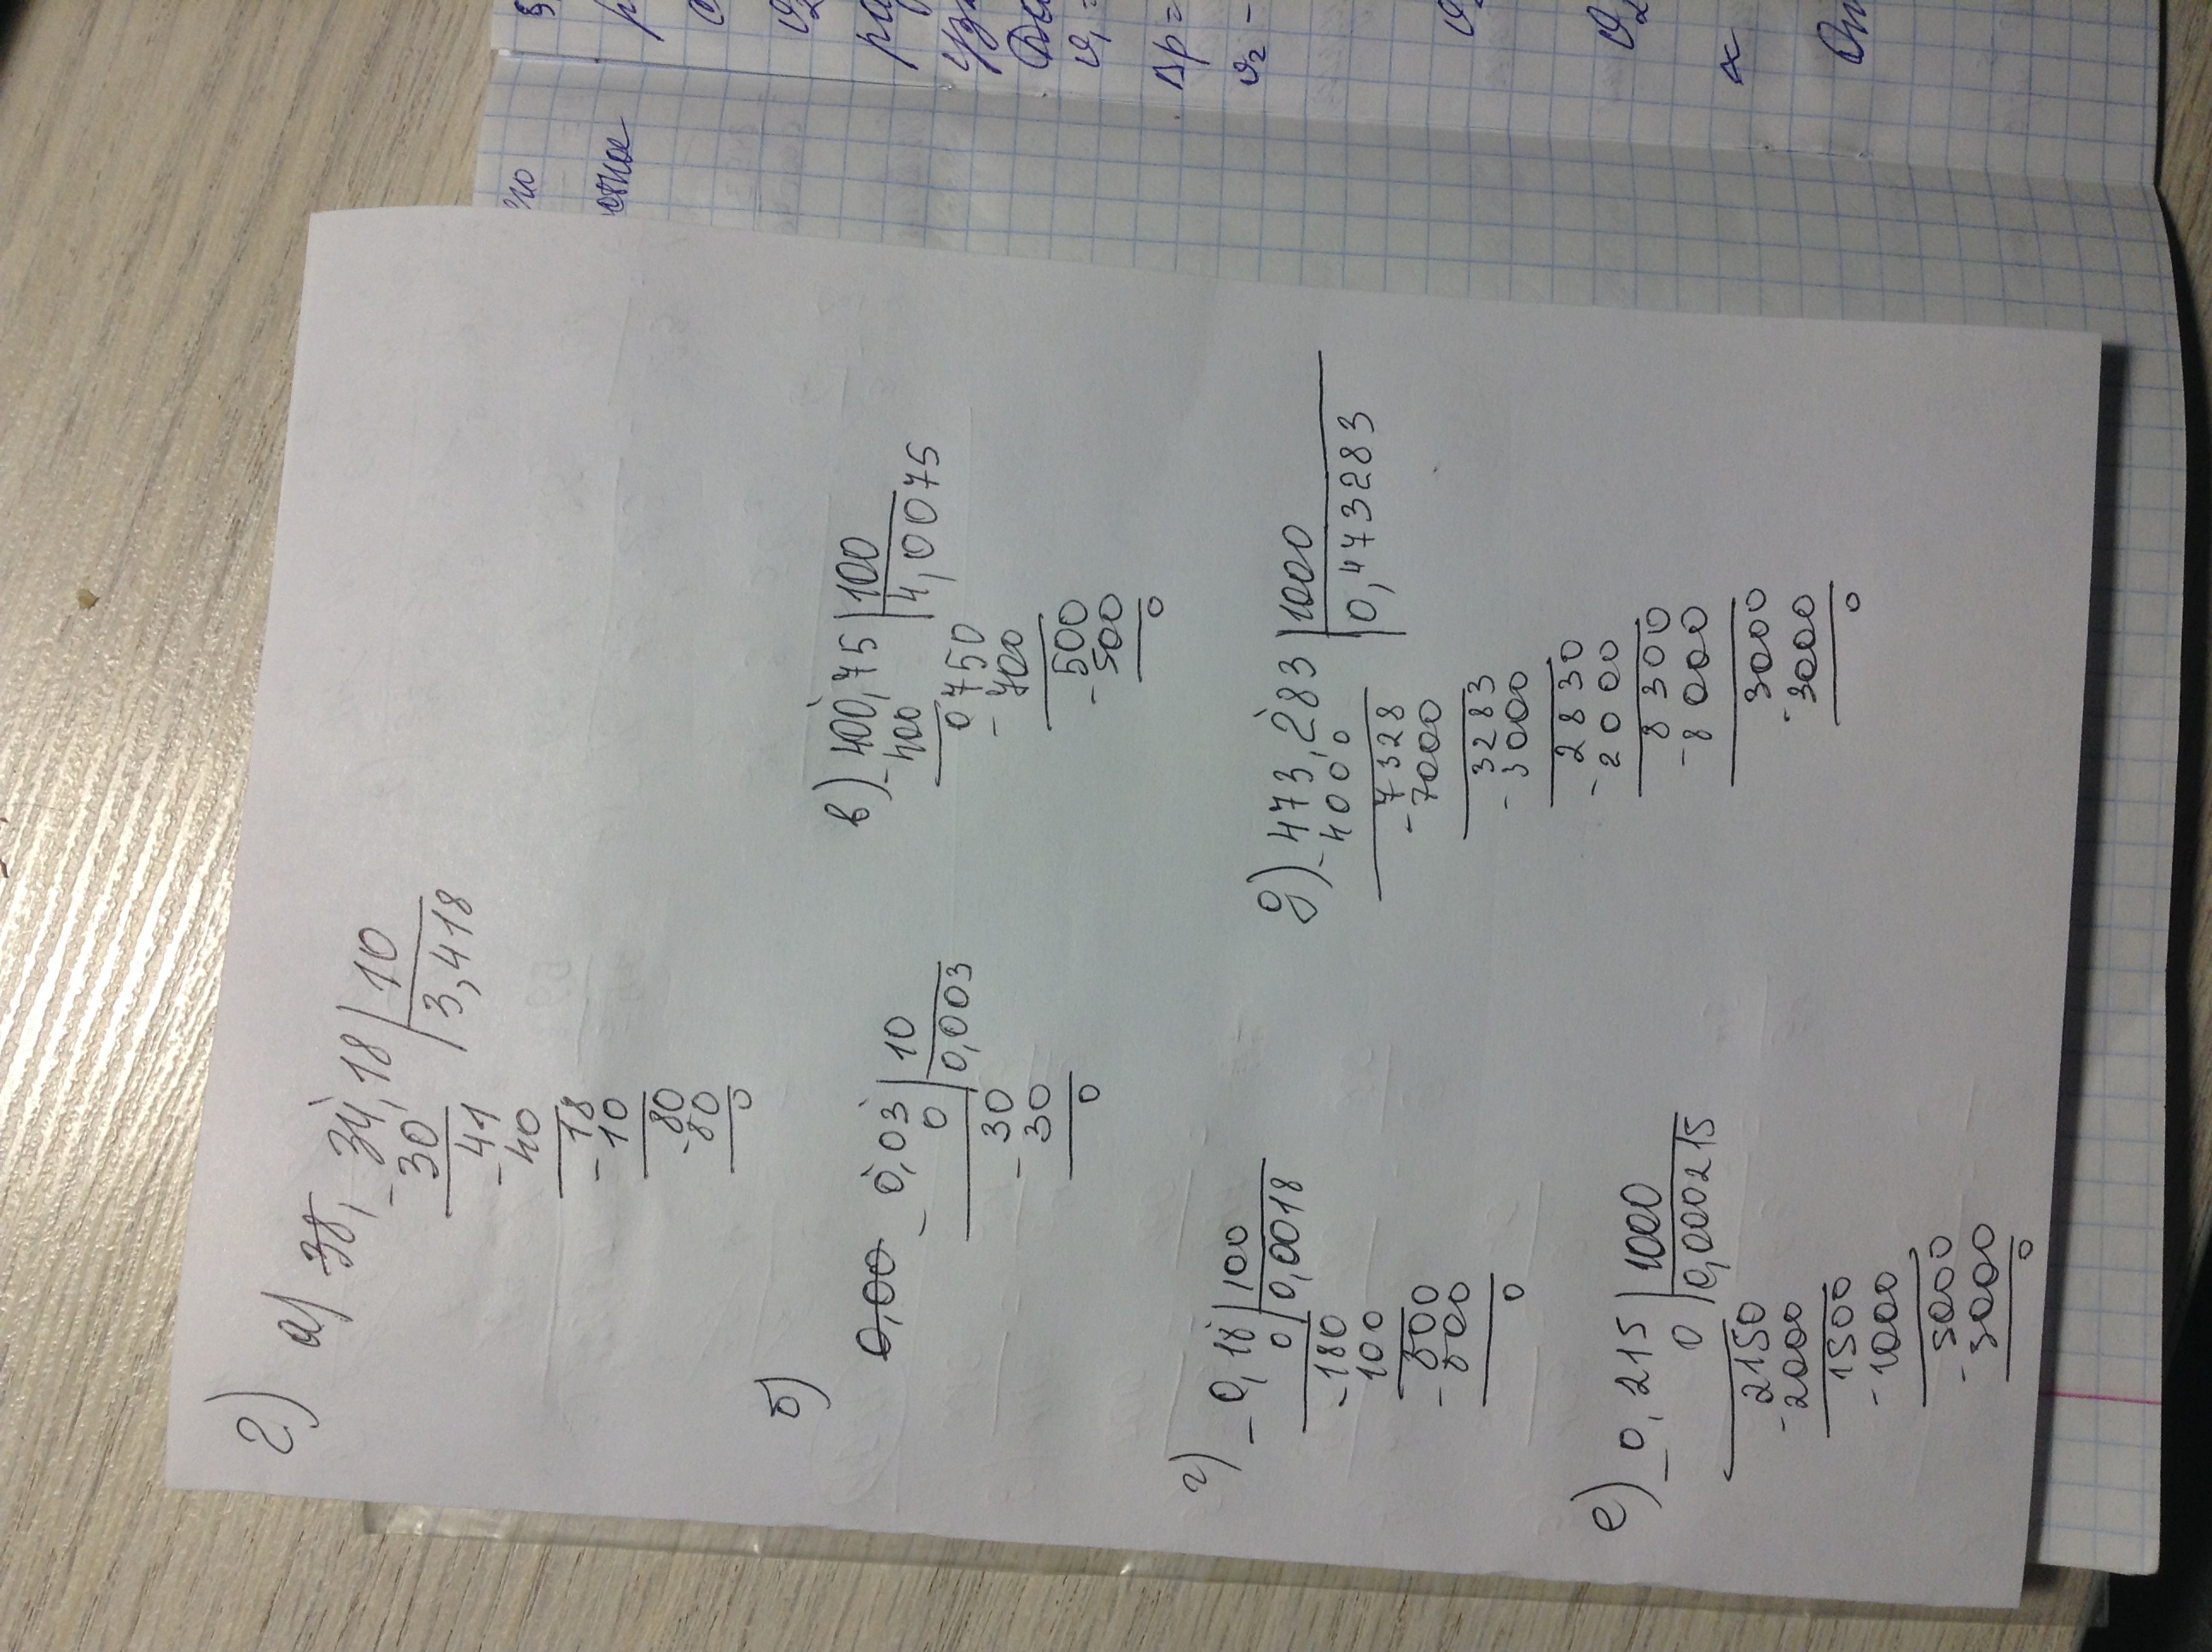 2)
а) 3̶8̶,̶ - 34,18 | 10
- 30 | 3,418
- 41
40
- 18
10
- 80
80
0
б) 0̶,̶0̶0̶ - 0,03 | 10
0 | 0,003
- 30
30
0
в) - 400,75 | 100
400 | 4,0075
0750
- 700
- 500
500
0
г) - 0,18 | 100
0 | 0,0018
- 180
100
- 800
800
0
д) - 473,283 | 1000
400,0 | 0,473283
- 7328
7000
- 3283
3000
- 2830
2000
- 8300
8000
- 3000
3000
0
е) - 0,215 | 1000
0 | 0,000215
- 2150
2000
- 1500
1000
- 5000
5000
0
υ₁ =
Δp =
υ₂ -